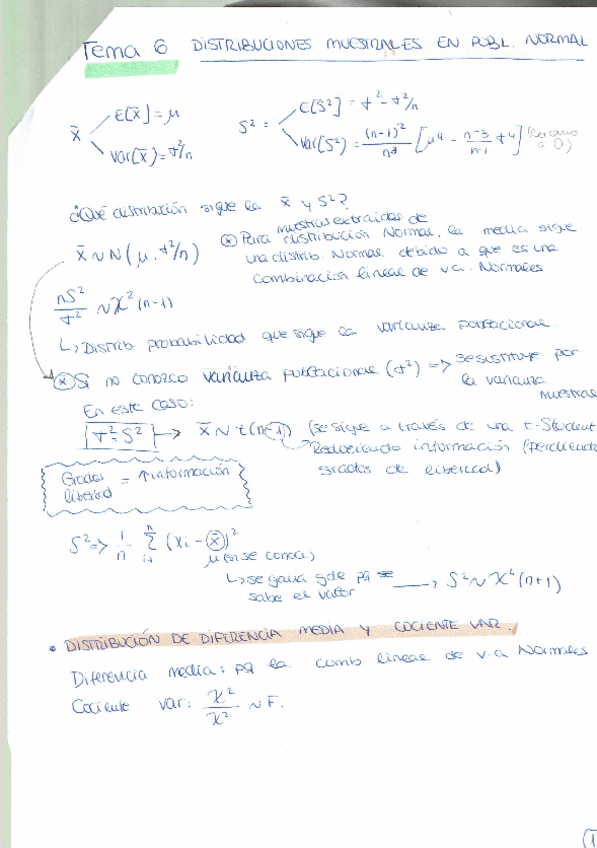 Tema 6 DISTRIBUCIONES MUESTRALES EN POBL. NORMAL
x̄
E[x̄] = μ
Var(x̄) = σ²/n
S² =
E[S²] = σ² - σ²/n
Var(S²) = (n-1)²/n³ [μ4 - n-3/n-1 σ4] (cercano a 0)
¿Qué distribución sigue la x̄ y S²?
x̄ ~ N(μ, σ²/n)
⊛ Para muestras extraidas de distribución Normal, la media sigue
una distrib. Normal debido a que es una
combinación lineal de v.a. Normales
nS²/σ² ~ χ²(n-1)
↳ Distrib probabilidad que sigue la varianza poblacional.
⊛ Si no conozco varianza poblacional (σ²) => se sustituye por
la varianza
muestral
En este caso:
σ² = S² → x̄ ~ t(n-1) (se sigue a través de una t-Student
Reduciendo información (perdiendo
grados de libertad)
Grados libertad = ↑ información
S² => 1/n Σ (xi - x̄)²
μ (si se conoce)
↳ se gana gde pq se
sabe el valor
→ S² ~ χ²(n+1)
• DISTRIBUCIÓN DE DIFERENCIA MEDIA Y COCIENTE VAR.
Diferencia media: pq la comb lineal de v.a Normales
Cociente var: χ²/χ² ~ F.
1